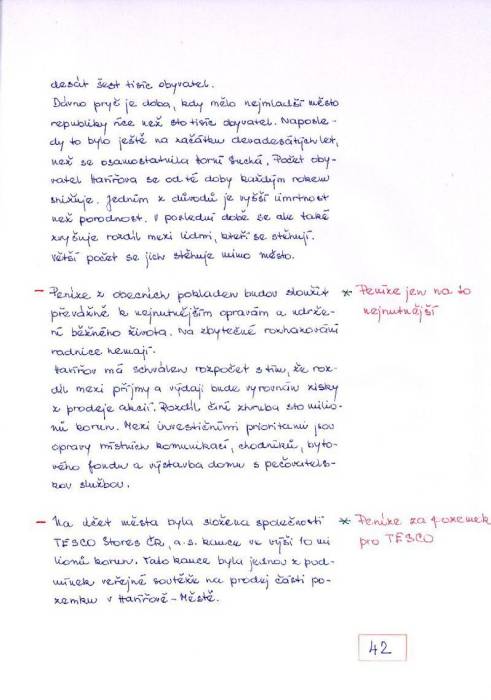 desát šest tisíc obyvatel.
Dávno pryč je doba, kdy mělo nejmladší město
republiky více než sto tisíc obyvatel. Naposle-
dy to bylo ještě na začátku devadesátých let,
než se osamostatnila Horní Suchá. Počet oby-
vatel Havířova se od té doby každým rokem
snižuje. Jedním z důvodů je vyšší úmrtnost
než porodnost. V poslední době se ale také
zvyšuje rozdíl mezi lidmi, kteří se stěhují.
Větší počet se jich stěhuje mimo město.
– Peníze z obecních pokladen budou sloužit
převážně k nejnutnějším opravám a udrže-
ní běžného života. Na zbytečné rozhazování
radnice nemají.
Havířov má schválen rozpočet s tím, že roz-
díl mezi příjmy a výdaji bude vyrovnán zisky
z prodeje akcií. Rozdíl činí zhruba sto milio-
nů korun. Mezi investičními prioritami jsou
opravy místních komunikací, chodníků, byto-
vého fondu a výstavba domu s pečovatels-
kou službou.
* Peníze jen na to
nejnutnější
– Na účet města byla složena společností
TESCO Stores ČR, a.s. kauce ve výši 10 mi
lionů korun. Tato kauce byla jednou z pod-
mínek veřejné soutěže na prodej části po-
zemku v Havířově-Městě.
* Peníze za pozemek
pro TESCO
42